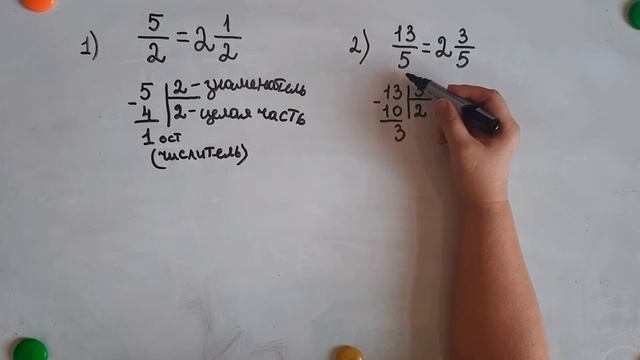 1) 5/2 = 2 1/2
5 | 2 - знаменатель
- 4 | 2 - целая часть
1 ост
(числитель)
2) 13/5 = 2 3/5
13 | 5
- 10 | 2
3